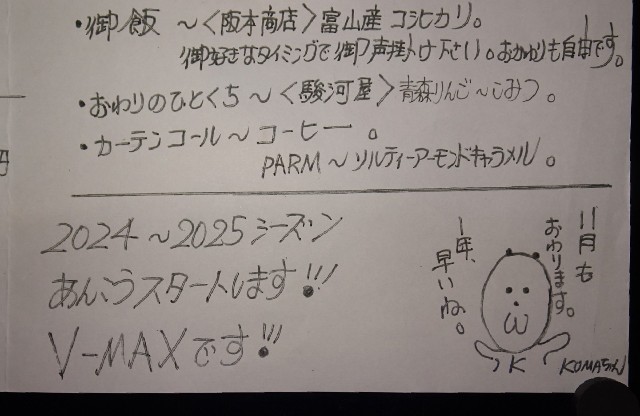 ・御飯 ～〈阪本商店〉富山産 コシヒカリ。
御好きなタイミングで御声掛け下さい。おかわりも自由です。
・おわりのひとくち～〈駿河屋〉青森りんご～こみつ。
・カーテンコール～コーヒー。
PARM～ソルティーアーモンドキャラメル。
円
2024～2025シーズン
あんこうスタートします!!!
V-MAXです!!!
11月も
おわります。
1年、
早いね。
K